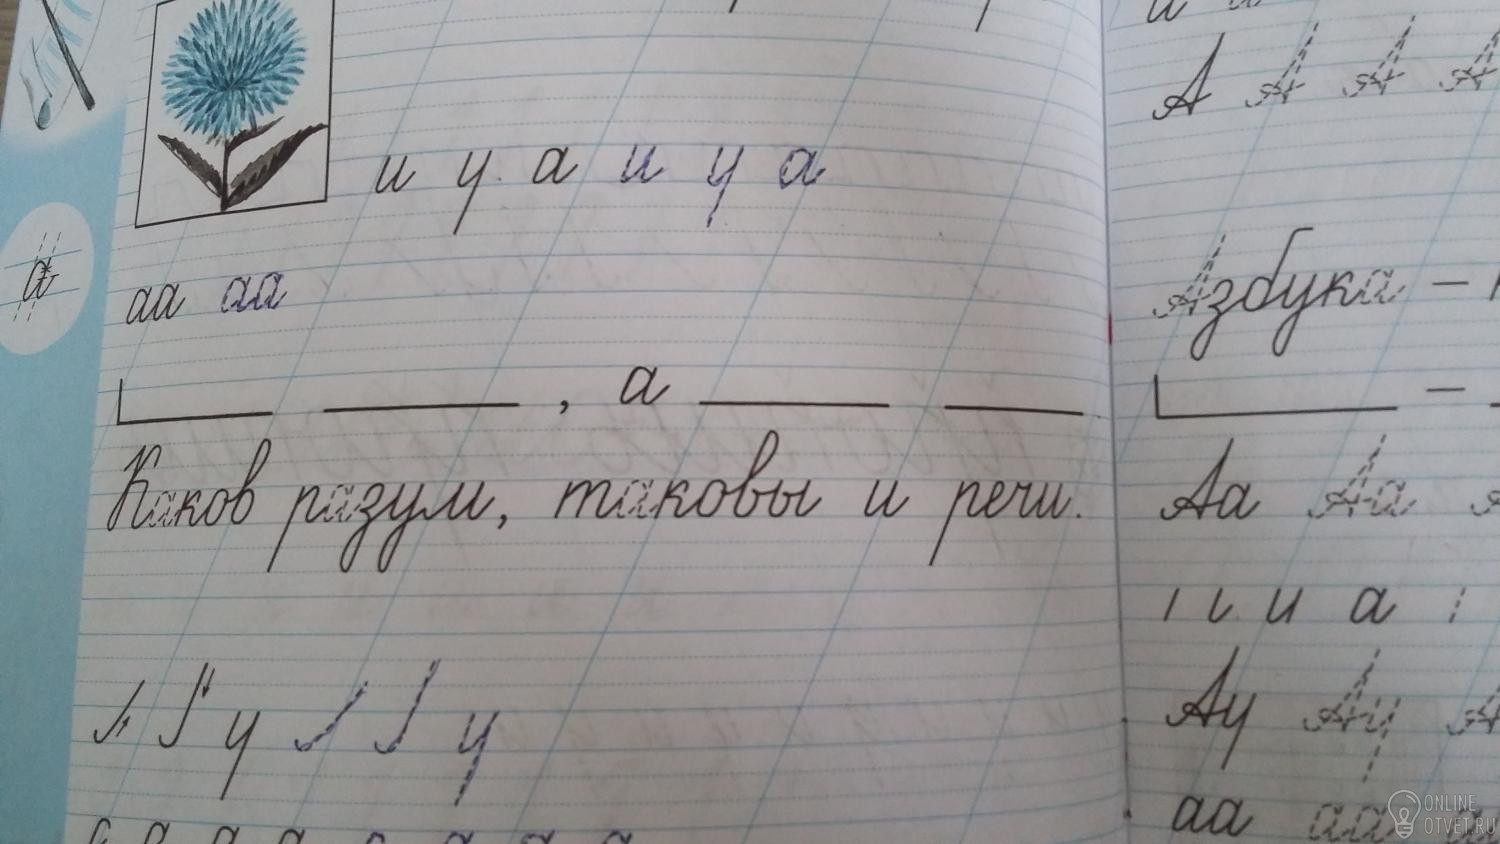 и у а и у а
а
аа аа
, а
Каков разум, таковы и речи.
у у
и а
А А А А
Азбука –
–
Аа Аа
и а
Ау Ау
аа аа
ONLINE
OTVET.RU